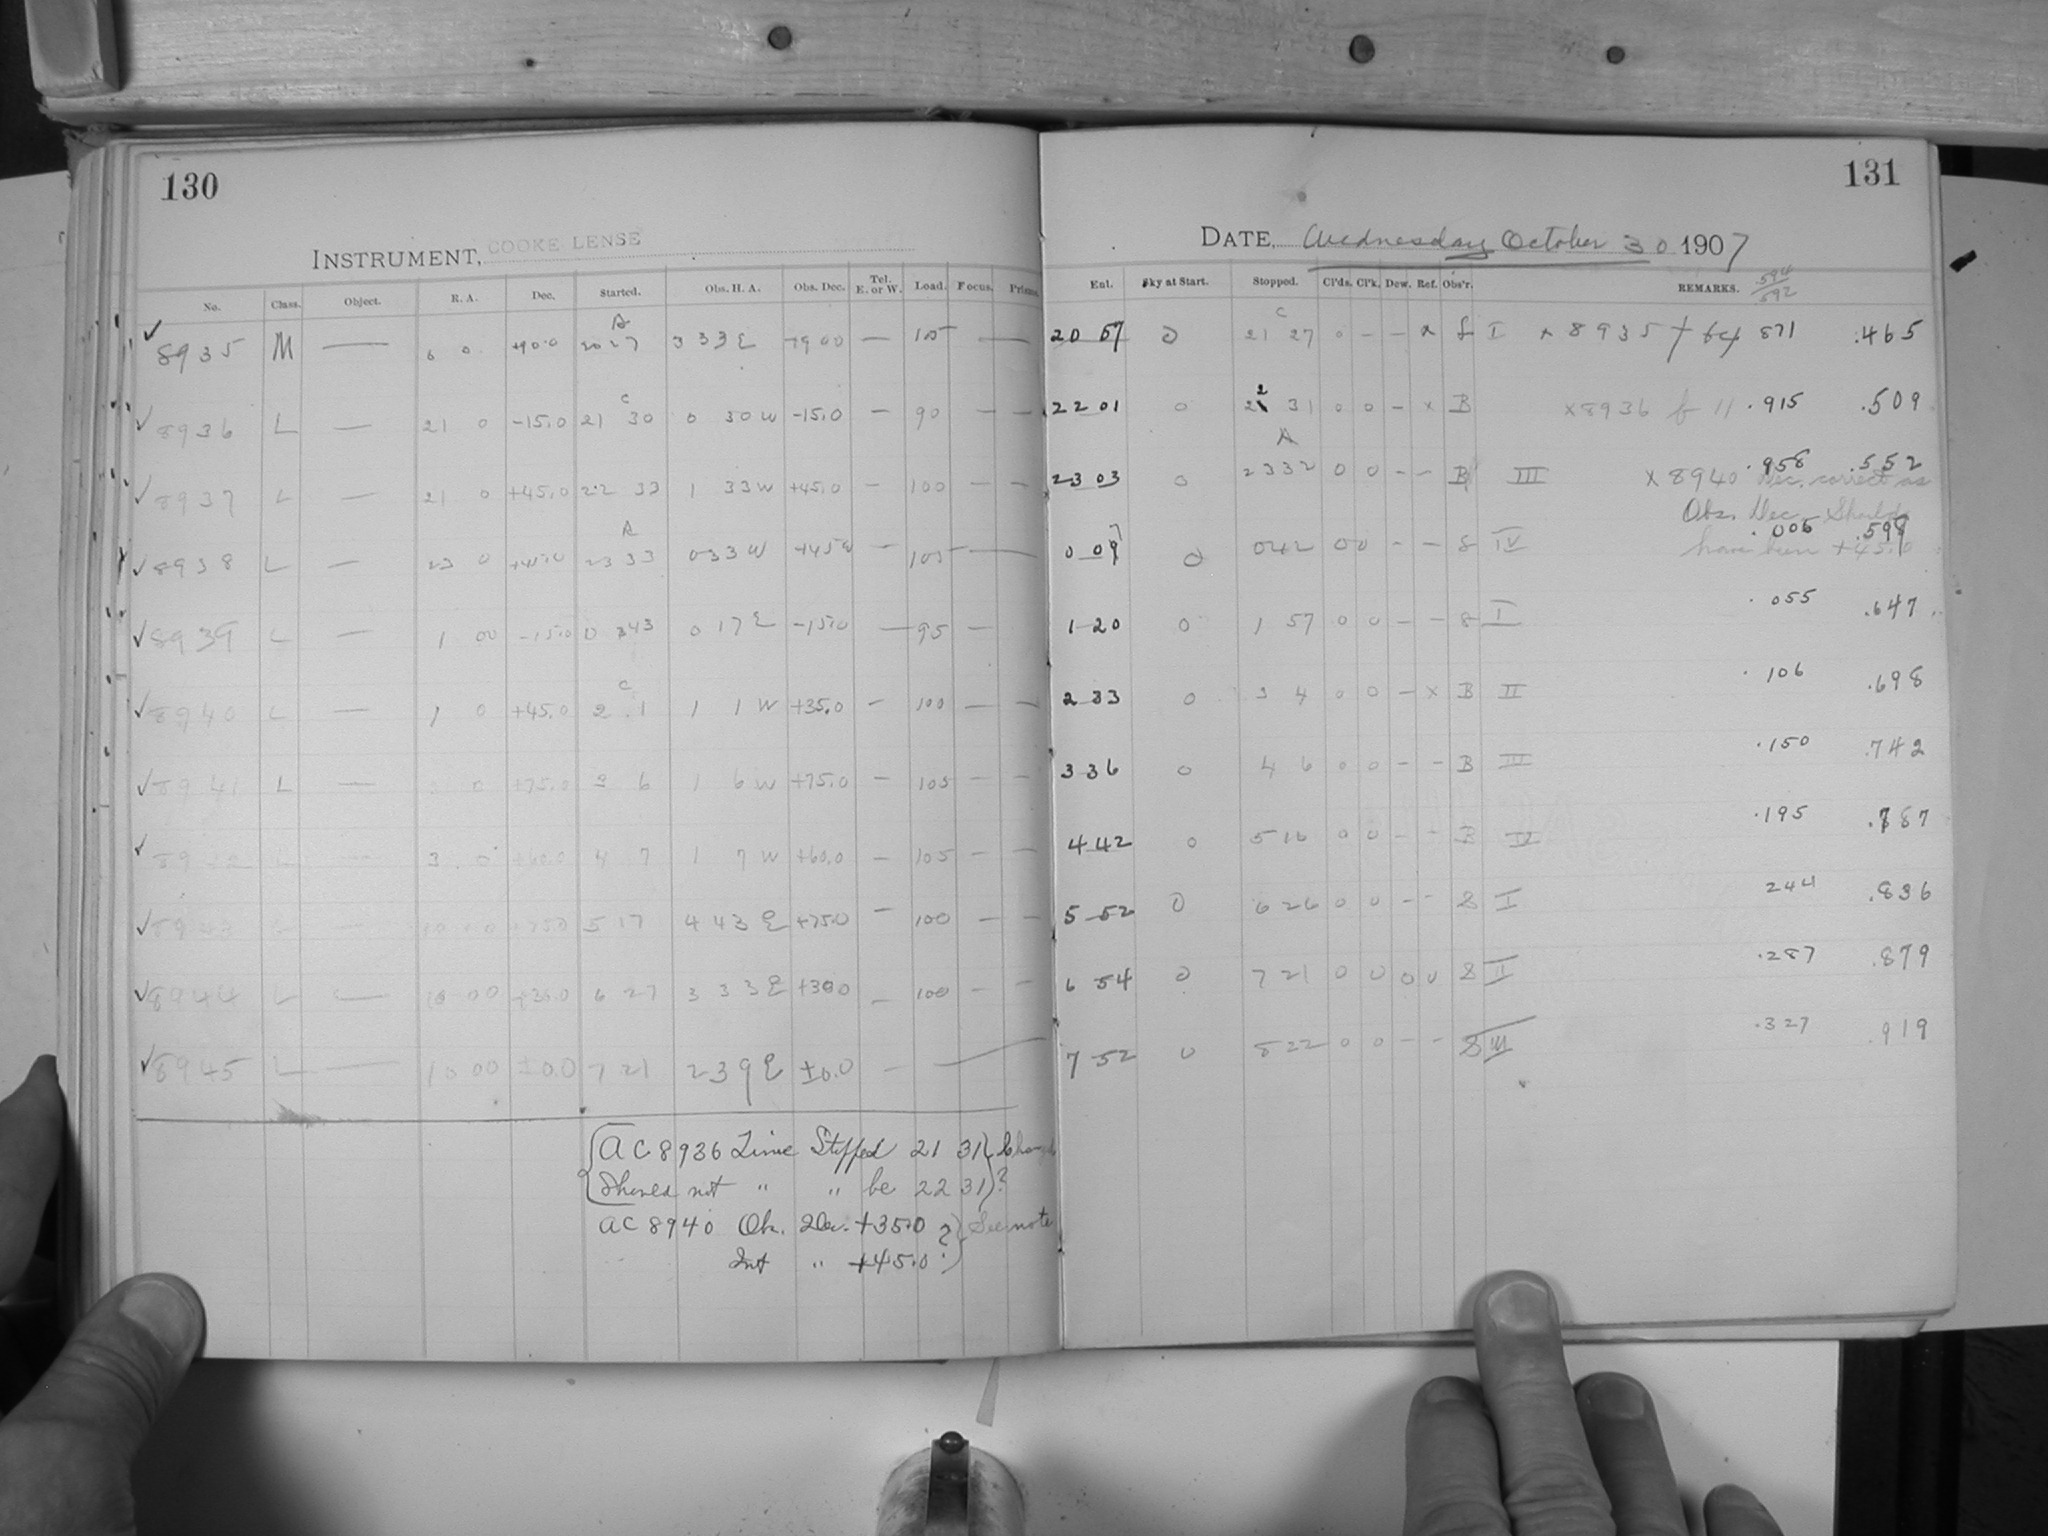 130
INSTRUMENT, COOKE LENSE
No. Class. Object. R. A. Dec. Started. Obs. H. A. Obs. Dec. Tel. E. or W. Load. Focus. Prisms.
A
8935 M — 6 0 +90.0 20 27 3 33 E +90 0 — 105 —
C
8936 L — 21 0 -15.0 21 30 0 30 W -15.0 — 90 — —
8937 L — 21 0 +45.0 22 33 1 33 W +45.0 — 100 — —
A
8938 L — 23 0 +45.0 23 33 0 33 W +45 0 — 105 —
8939 L — 1 00 -15.0 0 43 0 17 E -15.0 — 95 —
C
8940 L — 1 0 +45.0 2 1 1 1 W +35.0 — 100 — —
8941 L — 0 +75.0 3 6 1 6 W +75.0 — 105 — —
8942 L — 3 0 +60.0 4 7 1 7 W +60.0 — 105 — —
8943 L — 10 00 +75.0 5 17 4 43 E +75.0 — 100 — —
8944 L — 10 00 +30.0 6 27 3 33 E +30 0 — 100 — —
8945 L — 10 00 ±0.0 7 21 2 39 E ±0.0 — —
AC 8936 Time Stopped 21 31
Should not " " be 22 31 ?
AC 8940 Obs. Dec. +35.0 ? See note
Int " +45.0
131
DATE, Wednesday October 30 1907
Ent. Sky at Start. Stopped. Cl'ds. Cl'k. Dew. Ref. Obs'r. REMARKS. .594 / 592
C
20 57 0 21 27 0 - - x S I x 8935 f 64 871 .465
2
22 01 0 2 31 0 0 - x B x8936 f 11 .915 .509
A
23 03 0 23 32 0 0 - - B III .958 .552
x 8940 Dec. correct as
Obs. Dec. Should
0 09 0 0 42 0 0 - - S IV .006 .598
have been +45.0
1 20 0 1 57 0 0 - - S I .055 .647
2 33 0 3 4 0 0 - x B II .106 .698
3 36 0 4 6 0 0 - - B III .150 .742
4 42 0 5 16 0 0 - - B IV .195 .787
5 52 0 6 26 0 0 - - S I 244 .836
6 54 0 7 21 0 0 0 0 S II .287 .879
7 52 0 8 22 0 0 - - S III .327 .919